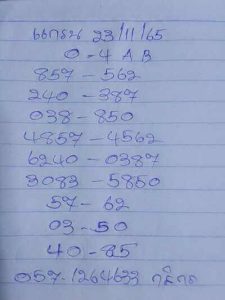 23/11/65
0-4 A B
857-562
240-387
038-850
4857-4562
6240-0387
3083-5850
57-62
03-50
40-85
057-1264633